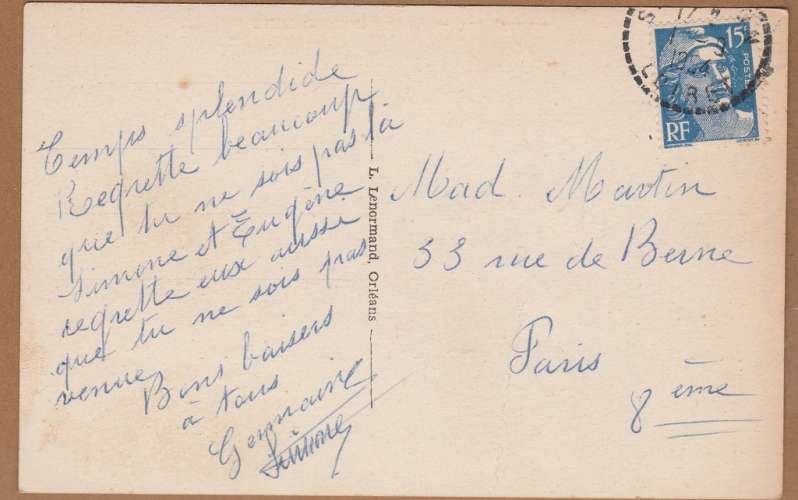 Temps splendide
Regrette beaucoup
que tu ne sois pas là
Simone et Eugène
regrette eux aussi
que tu ne sois pas
venue
Bons baisers
à tous
Germaine
Simone
L. Lenormand, Orléans
Mad Martin
33 rue de Berne
Paris
8 ème
15F
POSTES
RF
LOIRET